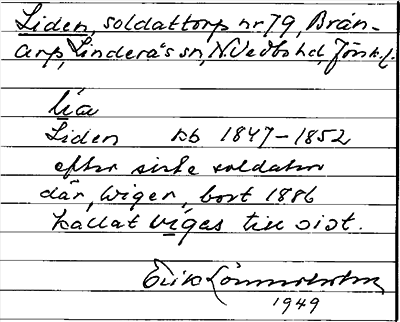 Liden, soldattorp nr 79, Brän-
arp, Linderås sn, N. Vedbo hd, Jönk.l.
Lia
Liden kb 1847–1852
efter siste soldaten
där, Wiger, bort 1886
kallat Vigas till sist.
Erik Lönnerholm
1949